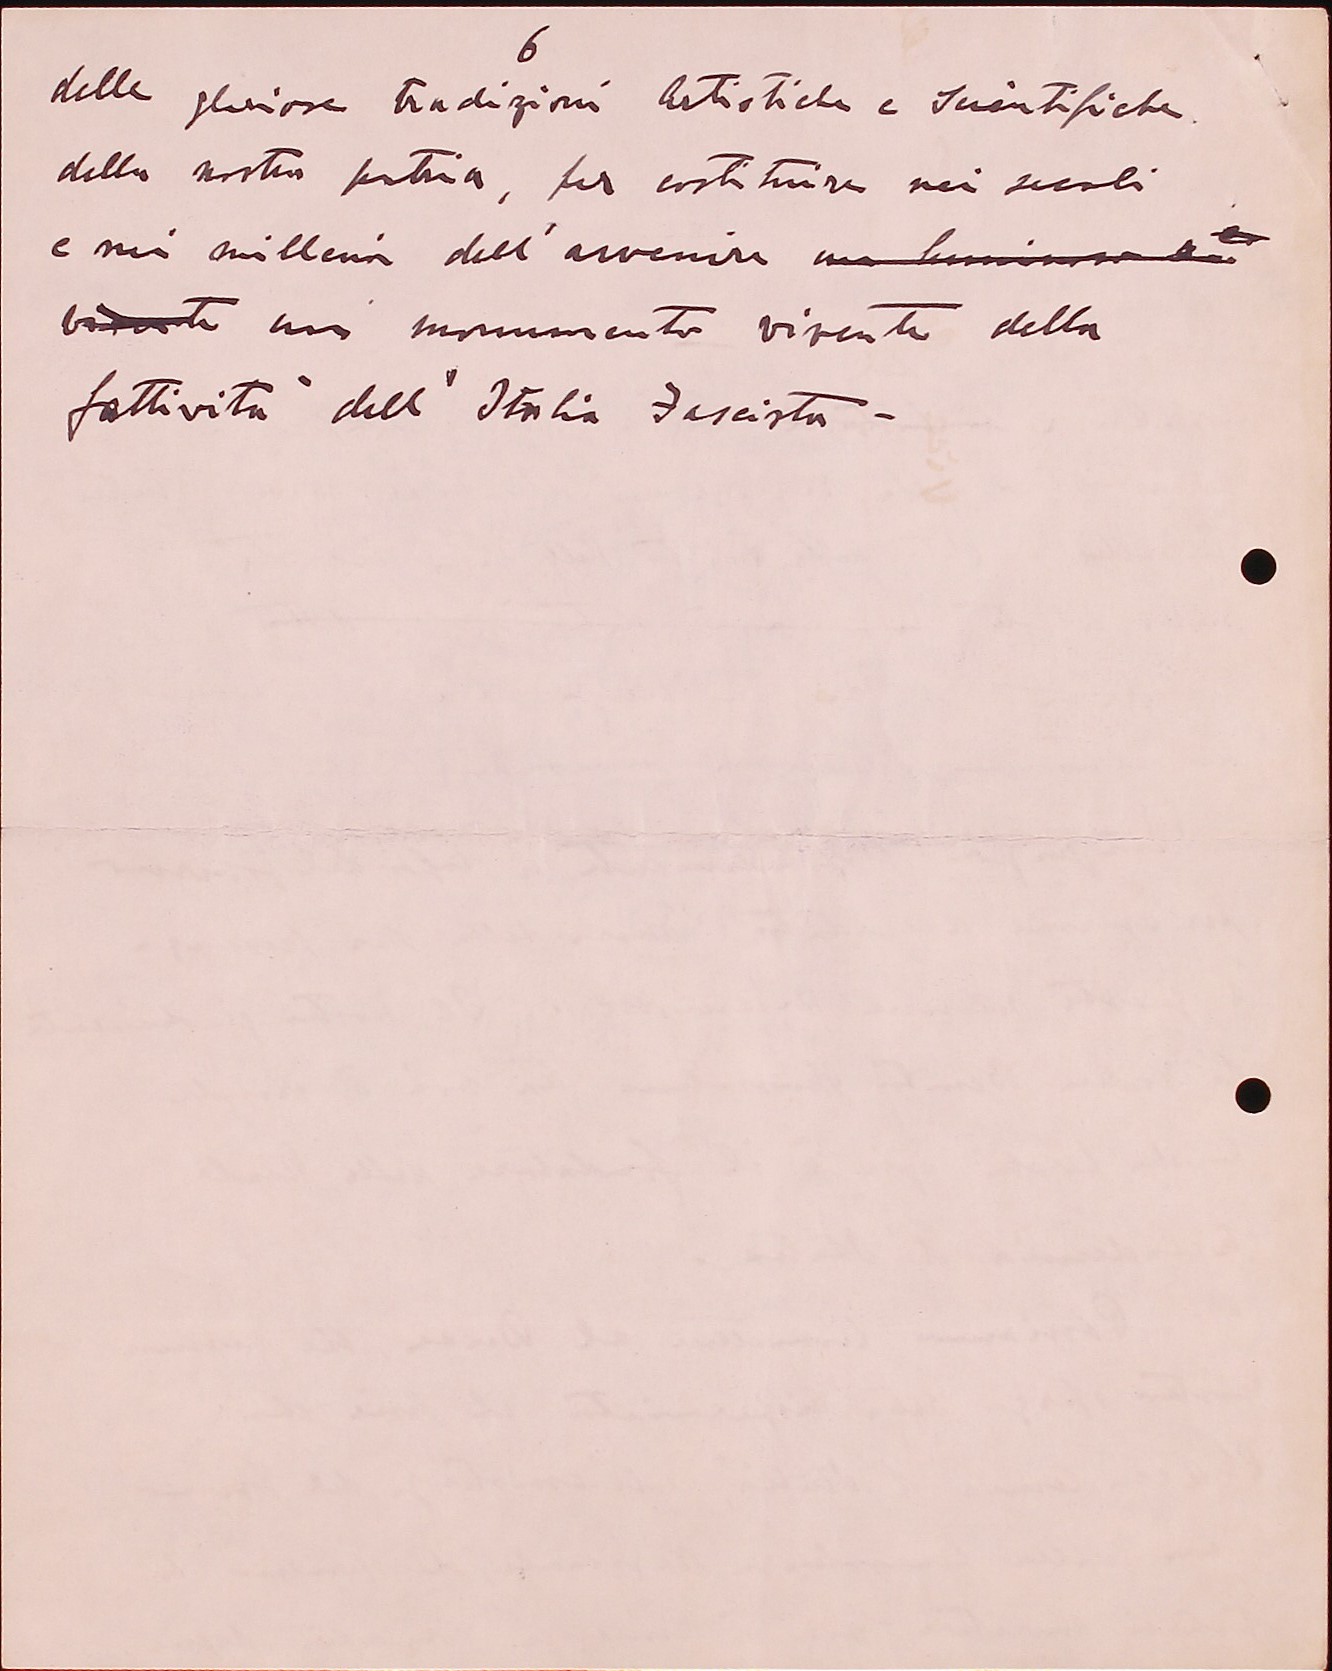 6
delle gloriose tradizioni Artistiche e Scientifiche
della nostra patria, per costituire nei secoli
e nei millenni dell'avvenire una luminosa
vivente un monumento vivente della
fattività dell'Italia Fascista -